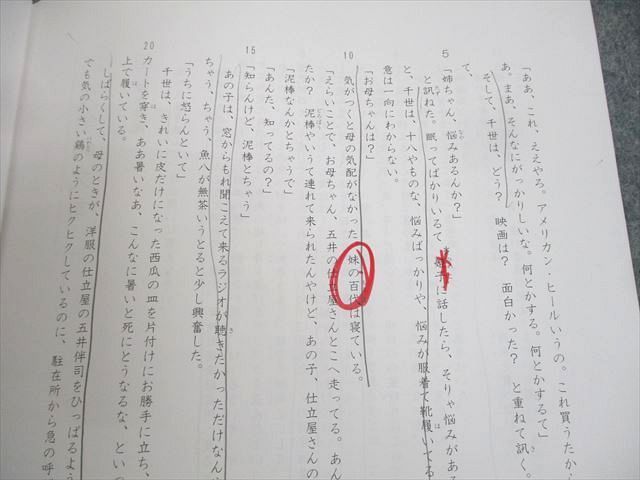 「ああ、これ、ええやろ。アメリカン・ヒールいうの。これ買うたから
あ。まあ、そんなにがっかりしいな。何とかする。何とかするて」
そして、千世は、どう？ 映画は？ 面白かった？ と重ねて訊く。
て、
5
「姉ちゃん、悩みあるんか？」
と訊ねた。眠ってばかりいるて 子に話したら、そりゃ悩みがある
と、千世は、十八やものな、悩みばっかりや、悩みが服着て靴履いてる
意は一向にわからない。
「お母ちゃんは？」
10
気がつくと母の気配がなかった。妹の百代は寝ている。
「えらいことで、お母ちゃん、五井の仕立屋さんとこへ走ってる。あん
たか？ 泥棒やいうて連れて来られたんやけど、あの子、仕立屋さんの
「泥棒なんかとちゃうで」
「あんた、知ってるの？」
15
「知らんけど、泥棒とちゃう」
あの子は、窓からもれ聞こえて来るラジオが聴きたかっただけなん
ちゃう、ちゃう、魚八が無茶いうとると少し興奮した。
「うちに怒らんといて」
千世は、きれいに皮だけになった西瓜の皿を片付けにお勝手に立ち、
20
カートを穿き、ああ暑いなあ、こんなに暑いと死にとうなるな、といっ
上で履いている。
しばらくして、母のときが、洋服の仕立屋の五井伴司をひっぱるよう
でも気の小さい鶏のようにヒクヒクしているのに、駐在所から急の呼